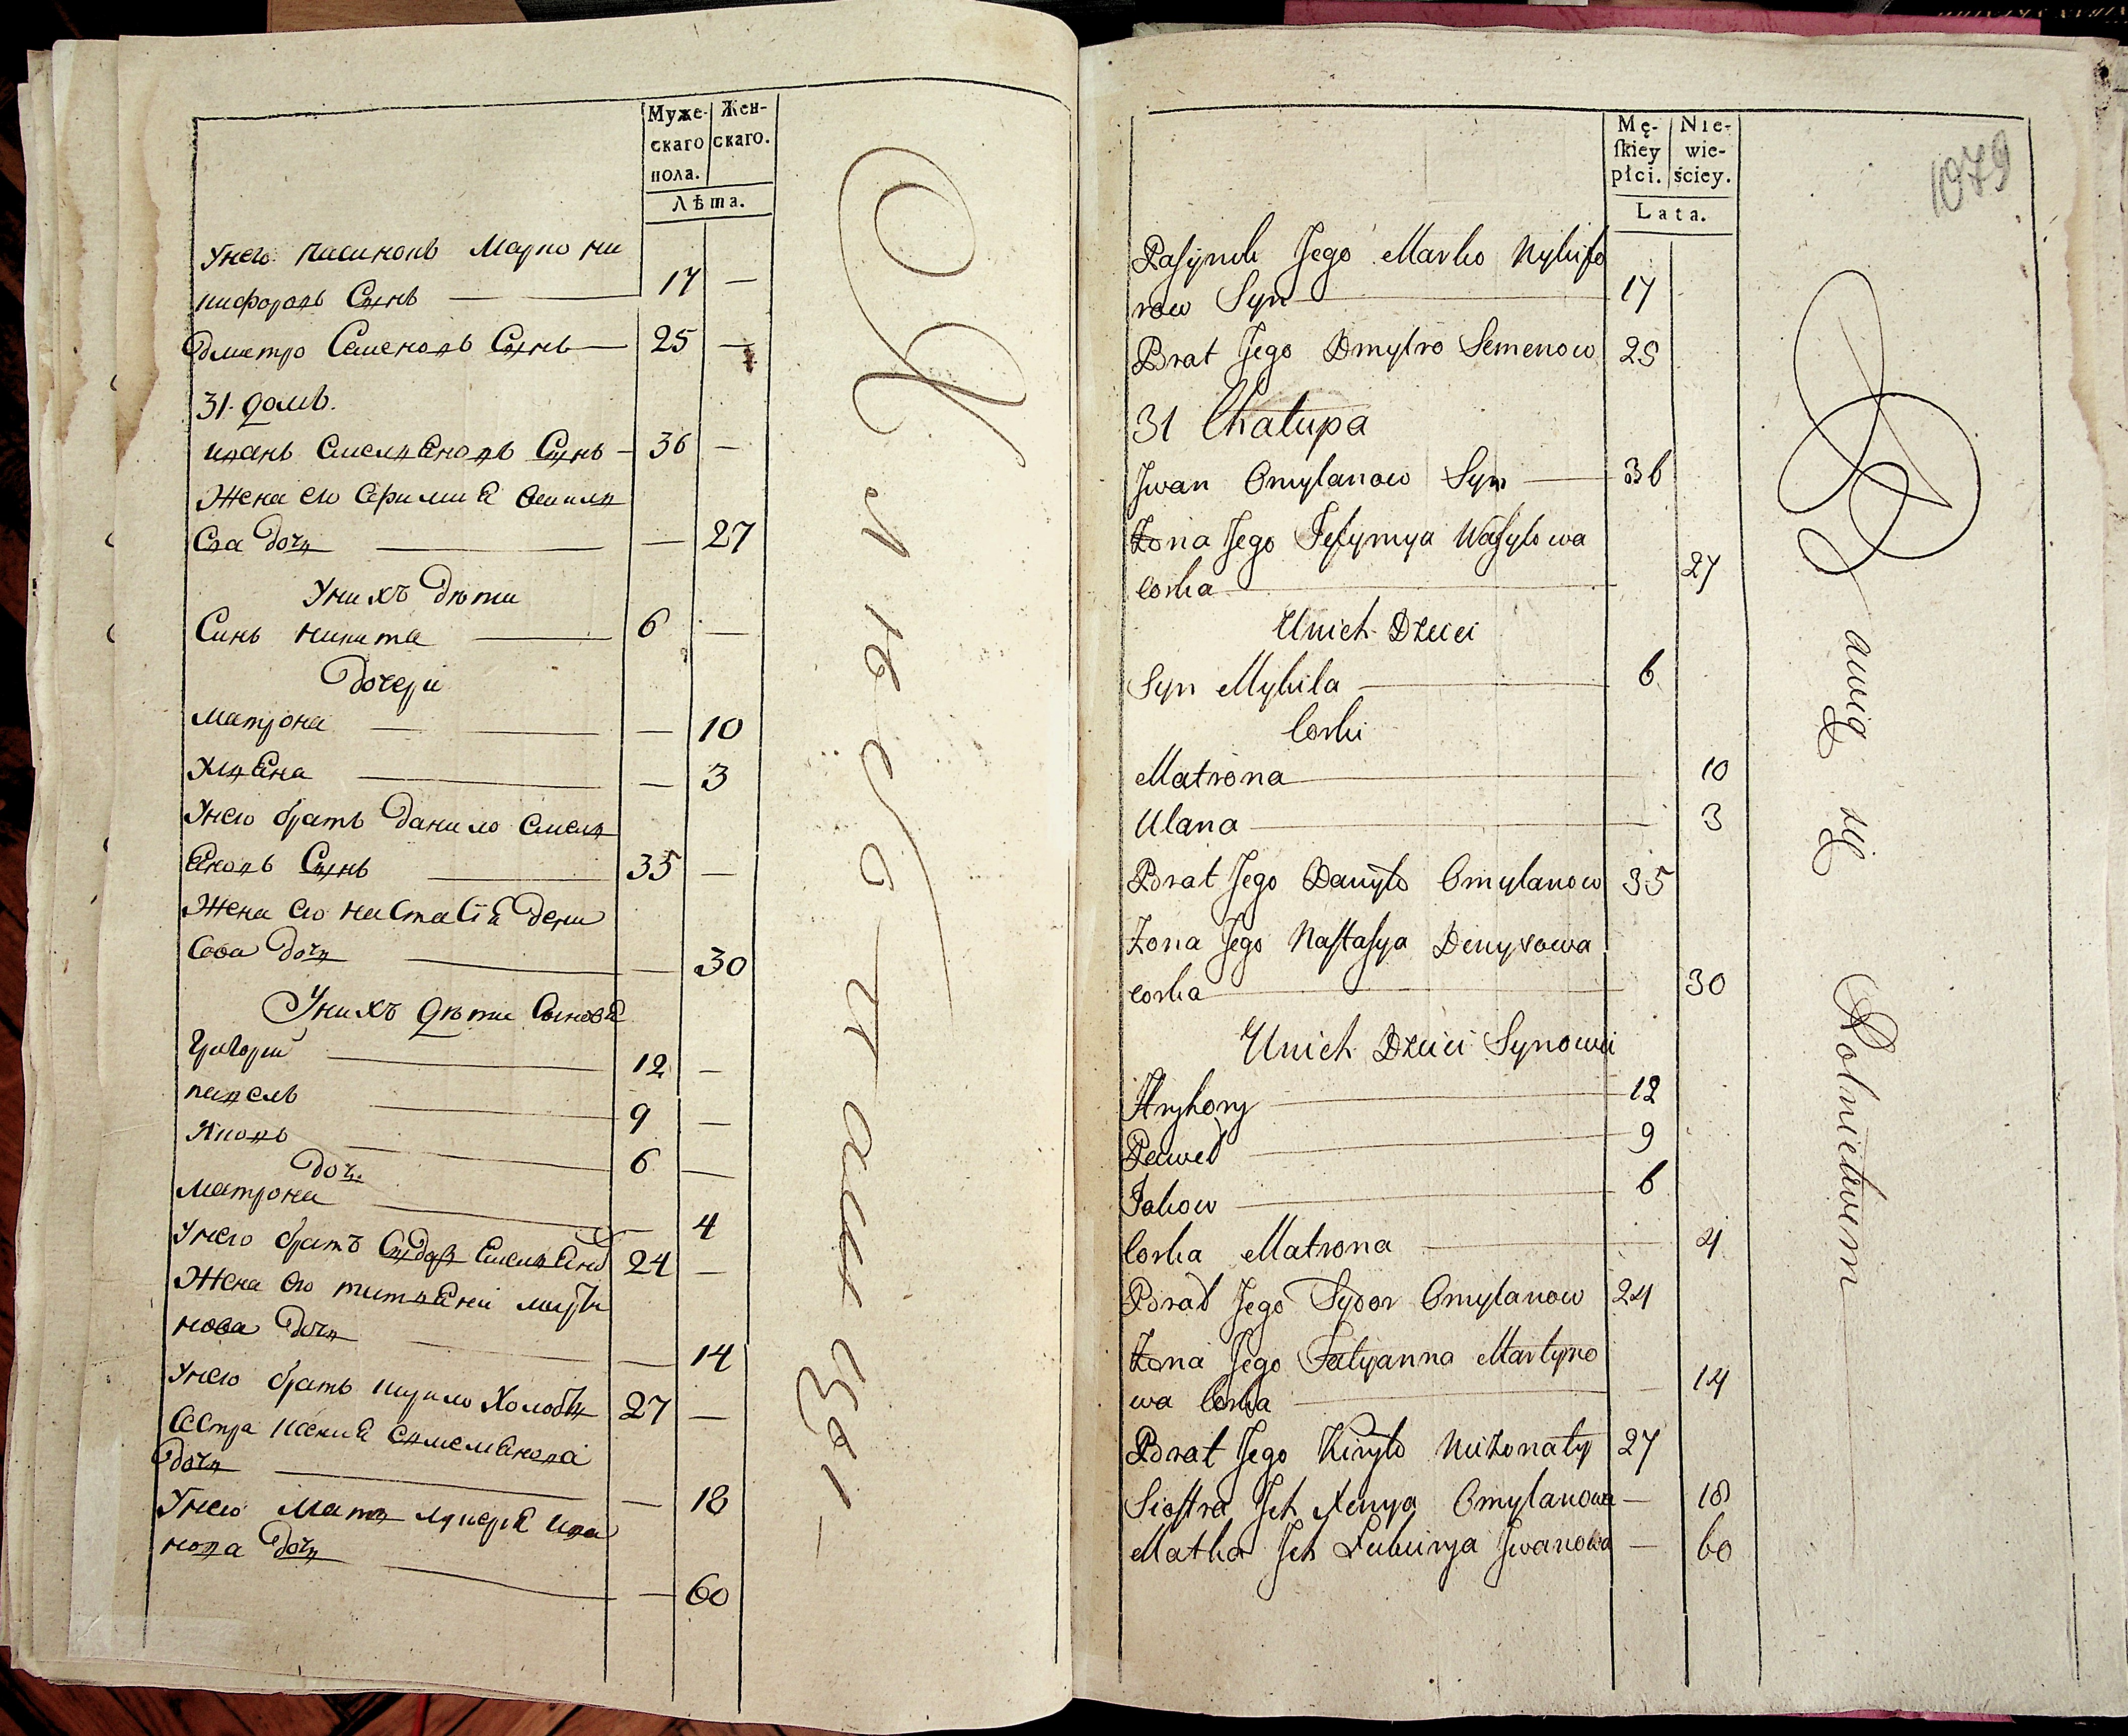 Муже-
скаго
пола.
Жен-
скаго.
Лѣта.
Унего пасинокъ Марко ни
кифоровъ Сынъ — 17 —
Дмитро Семеновъ Сынъ — 25 —
31. домъ.
иванъ Емелѧновъ Сынъ — 36 —
Жена его Ефимиѧ
дочь — — 27
Унихъ дѣти
Синъ никита — 6 —
Дочери
матрона — — 10
— — 3
Унего братъ Данило Емелѧ
новъ Сынъ — 35 —
Жена его настасіѧ Дени
сова дочь — — 30
Унихъ дѣти Синовѧ
Григорий — 12 —
павелъ — 9 —
Яковъ — 6 —
доч.
матрона — — 4
Унего братъ Сидоръ Емелѧно 24 —
Жена его татѧна марти
нова дочь — — 14
Унего братъ кирило Холостъ 27 —
Сестра ксениѧ
дочь — — 18
Унего мать лукериѧ ива
нова дочь — — 60
Mę-
ſkiey
płci.
Nie-
wie-
ściey.
Lata.
1079
Paſynok Jego Marko Nykifo
row Syn — 17
Brat Jego Dmytro Semenow 25
31 Chałupa
Jwan Omylanow Syn — 36
Żona Jego Jefymya Waſylowa
corka — 27
Unich Dzieci
Syn Mykita — 6
Corki
Matrona — 10
Ulana — 3
Brat Jego Danyło Omylanow 35
Żona Jego Naſtaſya Denysowa
corka — 30
Unich Dzieci Synowie
Hryhory — 12
Paweł — 9
Jakow — 6
Corka Matrona — 4
Brat Jego Sydor Omylanow 24
Żona Jego Tatyanna Martyno
wa Corka — 14
Brat Jego Kiryło Nieżonaty 27
Sioſtra Jch Xenya Omylanowa — 18
Matka Jch Łukirya Jwanowa — 60
Bawią się Rolnictwem